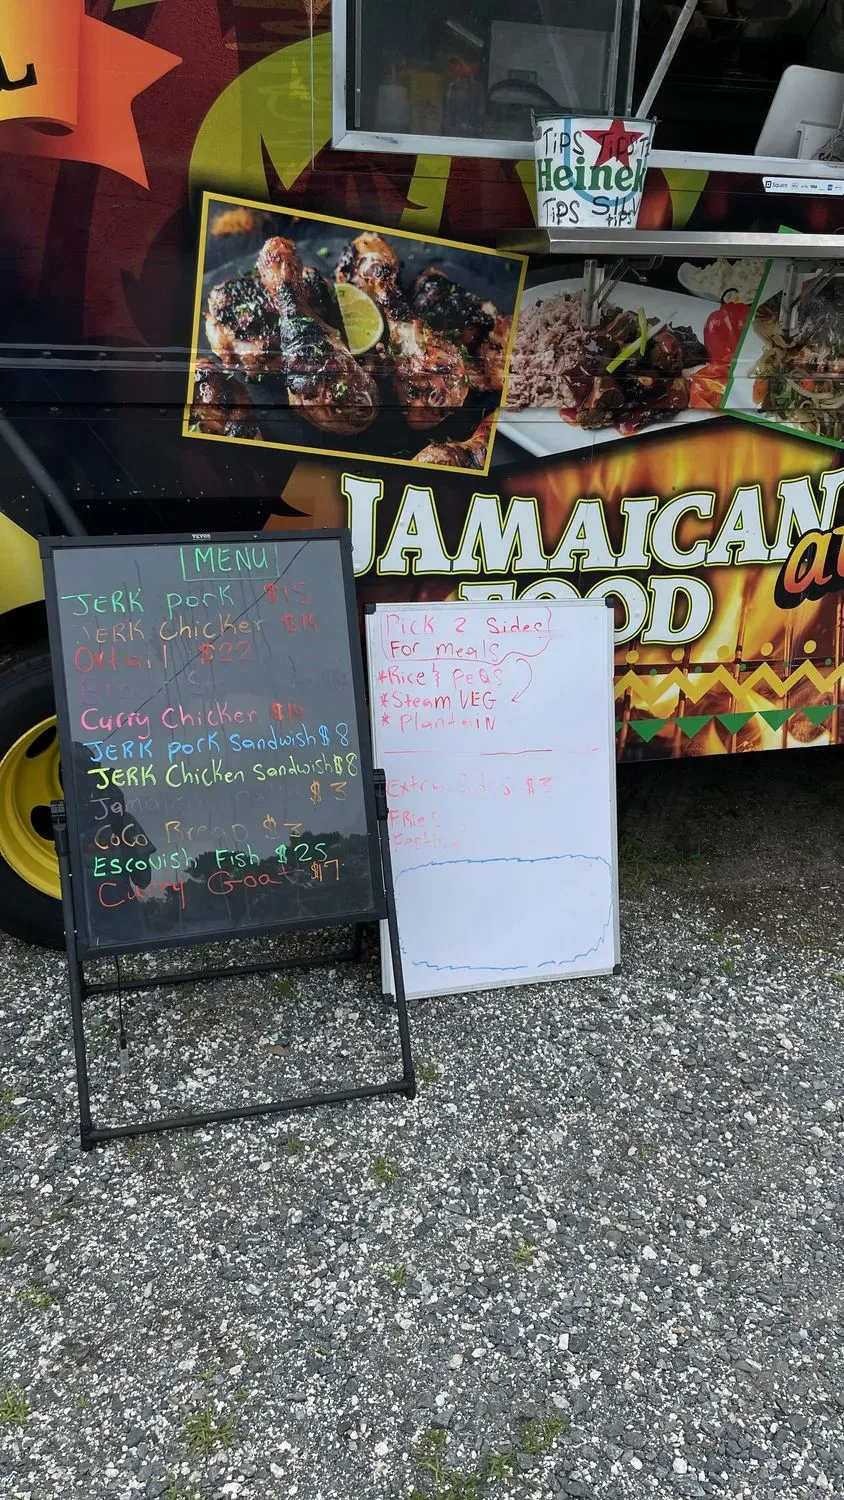 TIPS TIPS
Heineken
TIPS
Square
VISA
JAMAICAN
FOOD
VEVOR
MENU
JERK pork $15
JERK Chicken $14
Oxtail $22
Curry Chicken
JERK pork Sandwish $8
JERK Chicken Sandwish $8
$3
CoCo Bread $3
Escovish Fish $25
Curry Goat $17
Pick 2 Sides
For meals
*Rice & Peas
*Steam VEG
* Plantain
Extra Sides $3
Fries